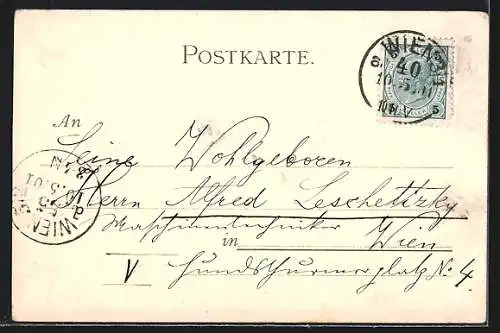 POSTKARTE.
WIEN
40
10.5.01
5
An
Seine Wohlgeboren
Herrn Alfred Leschetizky
Maschinentechniker
in Wien
V Hundsthurmerplatz No 4.
WIEN
10.5.01